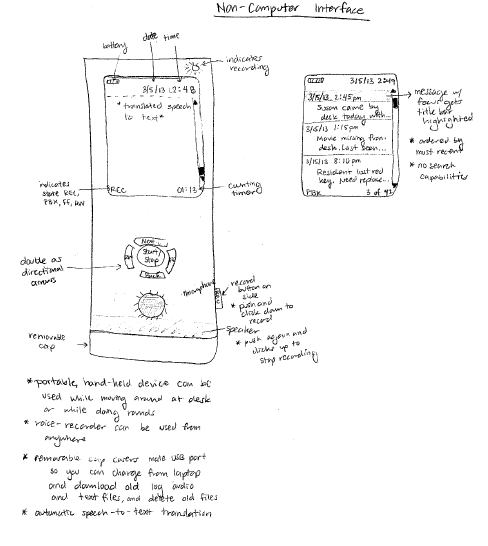 Non-Computer Interface
battery
date
time
indicates
recording
3/5/13 12:48
*translated speech
to text*
indicates
state REC,
PBK, FF,
REC
01:13
counting
timer
double as
directional
arrows
Next
Start/
Stop
Back
microphone
record
button on
side
* push and
click down to
record
speaker
* push again and
clicks up to
stop recording
removable
cap
3/5/13 22:49
3/5/13 2:45pm
Susan came by
desk today with...
3/5/13 1:15pm
Movie missing from
desk. Last seen...
3/5/13 8:10pm
Resident lost red
key. Need replace...
PBK
3 of 42
message w/
focus gets
title bar
highlighted
* ordered by
most recent
* no search
capabilities
*portable, hand-held device can be
used while moving around at desk
or while doing rounds
* voice-recorder can be used from
anywhere
* removable cap covers male USB port
so you can charge from laptop
and download old log audio
and text files, and delete old files
* automatic speech-to-text translation